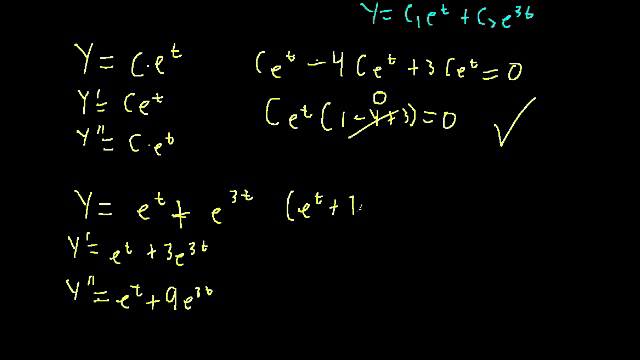 Y = C₁e^t + C₂e^3t
Y = C·e^t
Ce^t − 4Ce^t + 3Ce^t = 0
Y' = Ce^t
0
Ce^t(1 − 4 + 3) = 0 ✓
Y'' = C·e^t
Y = e^t + e^3t (e^t +
Y' = e^t + 3e^3t
Y'' = e^t + 9e^3t